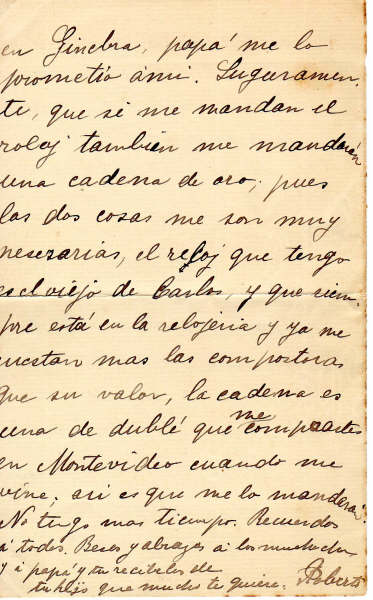 en Ginebra, papá me lo
prometió ámi. Seguramen-
te, que sé me mandan el
roloj tambien me mandarán
una cadena de oro, pues
las dos cosas me son muy
neserarias, el reloj que tengo
es el viejo de Carlos, y que siem-
pre está en la relojeria y ya me
cuestan mas las composturas
que su valor, la cadena es
una de dublé que me comprastes
en Montevideo cuando me
vine, asi es que me lo manderán.
No tengo mas tiempo. Recuerdos
á todos. Besos y abrazos á los muchachos
y á papá y tu recibelos de
tu hijo que mucho te quiere. Roberto